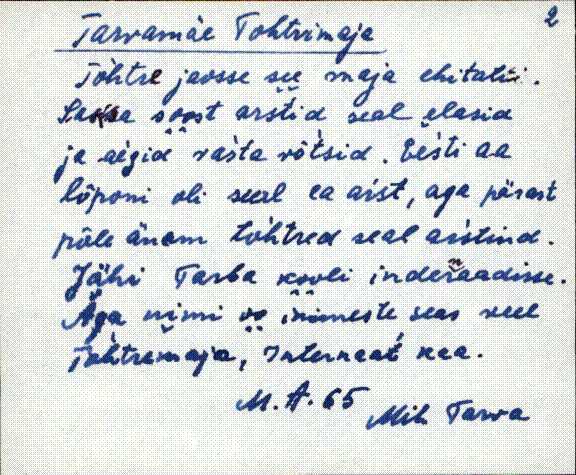 2
Tarvamäe Tohtrimaja
Tohtre jaosse see maja ehitati.
Saksa soost arstid seal elasid
ja aegid vasta võtsid. Eesti aa
lõponi oli seal ea arst, aga pärast
põle änam tohtred seal arstind.
Jähi Tarba kooli indernaadisse.
Aga nimi oo inimeste seas veel
Tohtremaja, Internaat kaa.
M. A. 65
Mih. Tarva